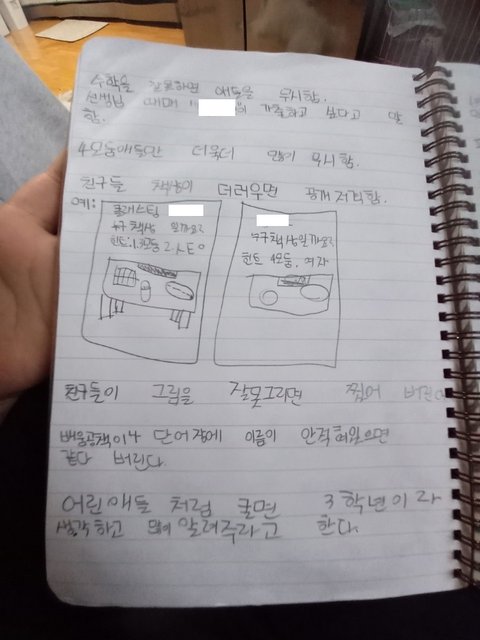 수학을 잘못하면 애들을 무시함.
선생님 때매 " 이 가출하고 싶다고 말
함.
4모둠애들만 더욱더 많이 무시함.
친구들 책상이 더러우면 공개 저격함.
예:
클래스팅
누구책상 일까요?
힌트:1.3모둠 2.
누구책상일까요?
힌트 4모둠, 여자
친구들이 그림을 잘못그리면 찢어 버린다
배움공책이나 단어장에 이름이 안적혀있으면
갖다 버린다.
어린애들 처럼 굴면 3학년이라
생각하고 많이 알려주라고 한다